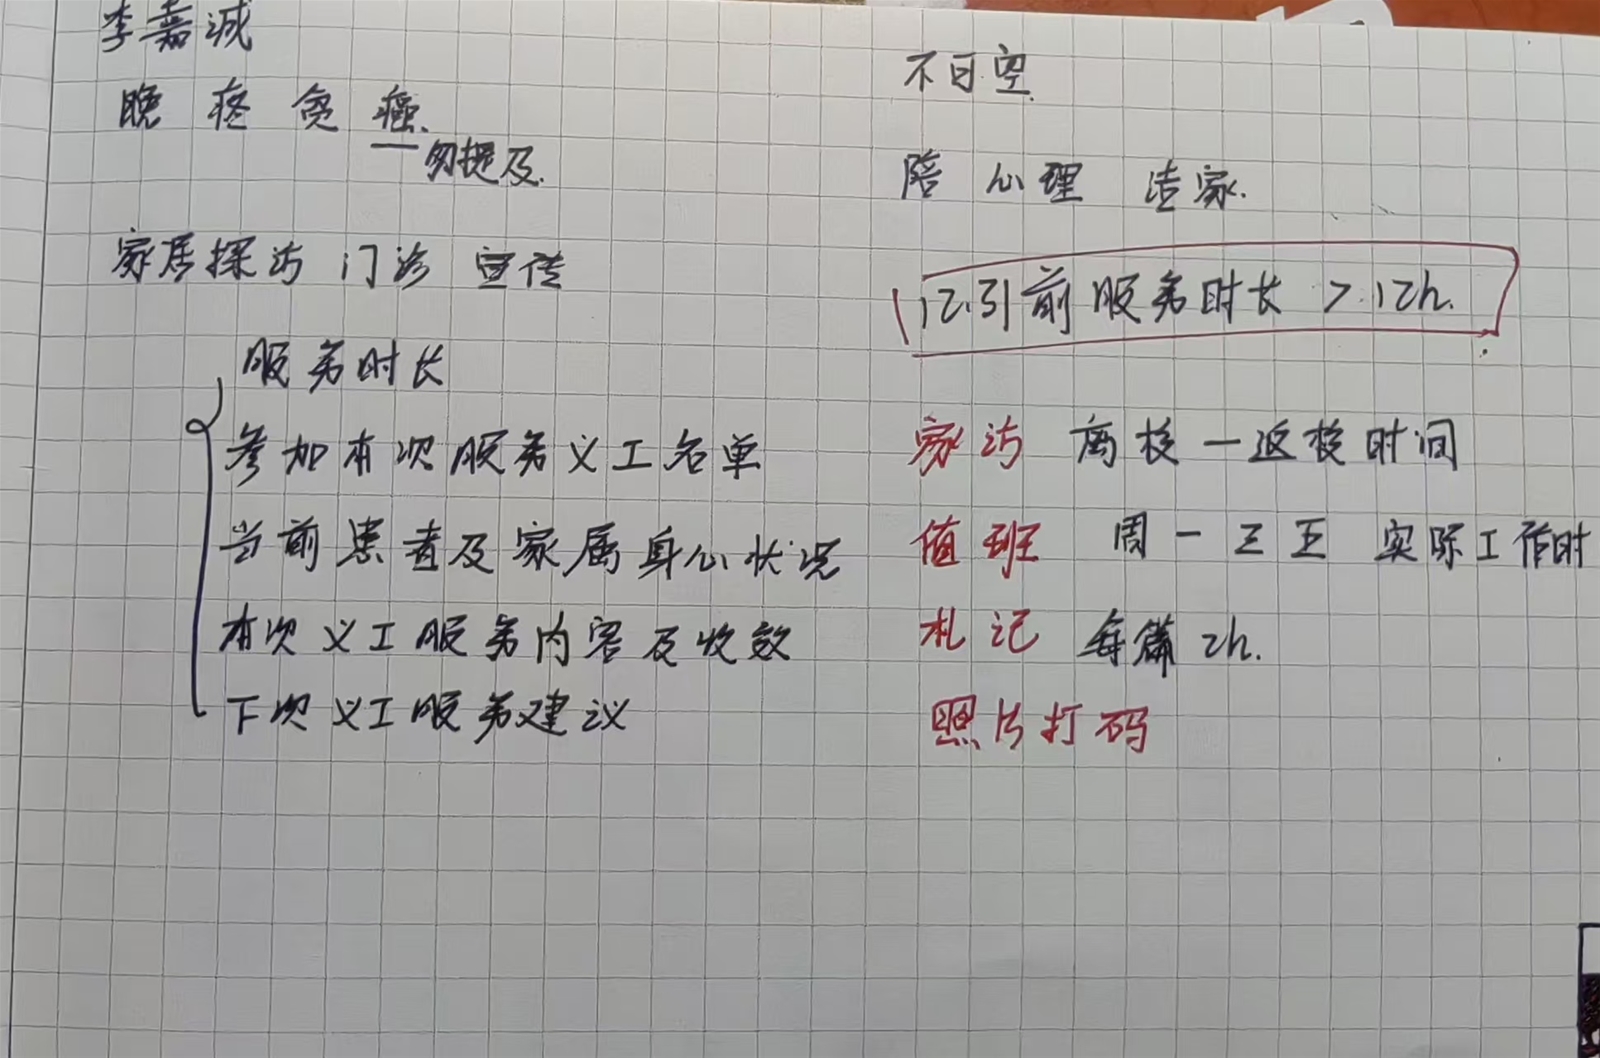 李嘉诚
晚 疼 贫 癌.
—勿提及.
家居探访 门诊 宣传
服务时长
参加本次服务义工名单
当前患者及家属身心状况
本次义工服务内容及收效
下次义工服务建议
不可空
陪 心理 洁家.
12.31前服务时长 > 12h.
家访 离校—返校时间
值班 周一三五 实际工作时
札记 每篇2h.
照片打码